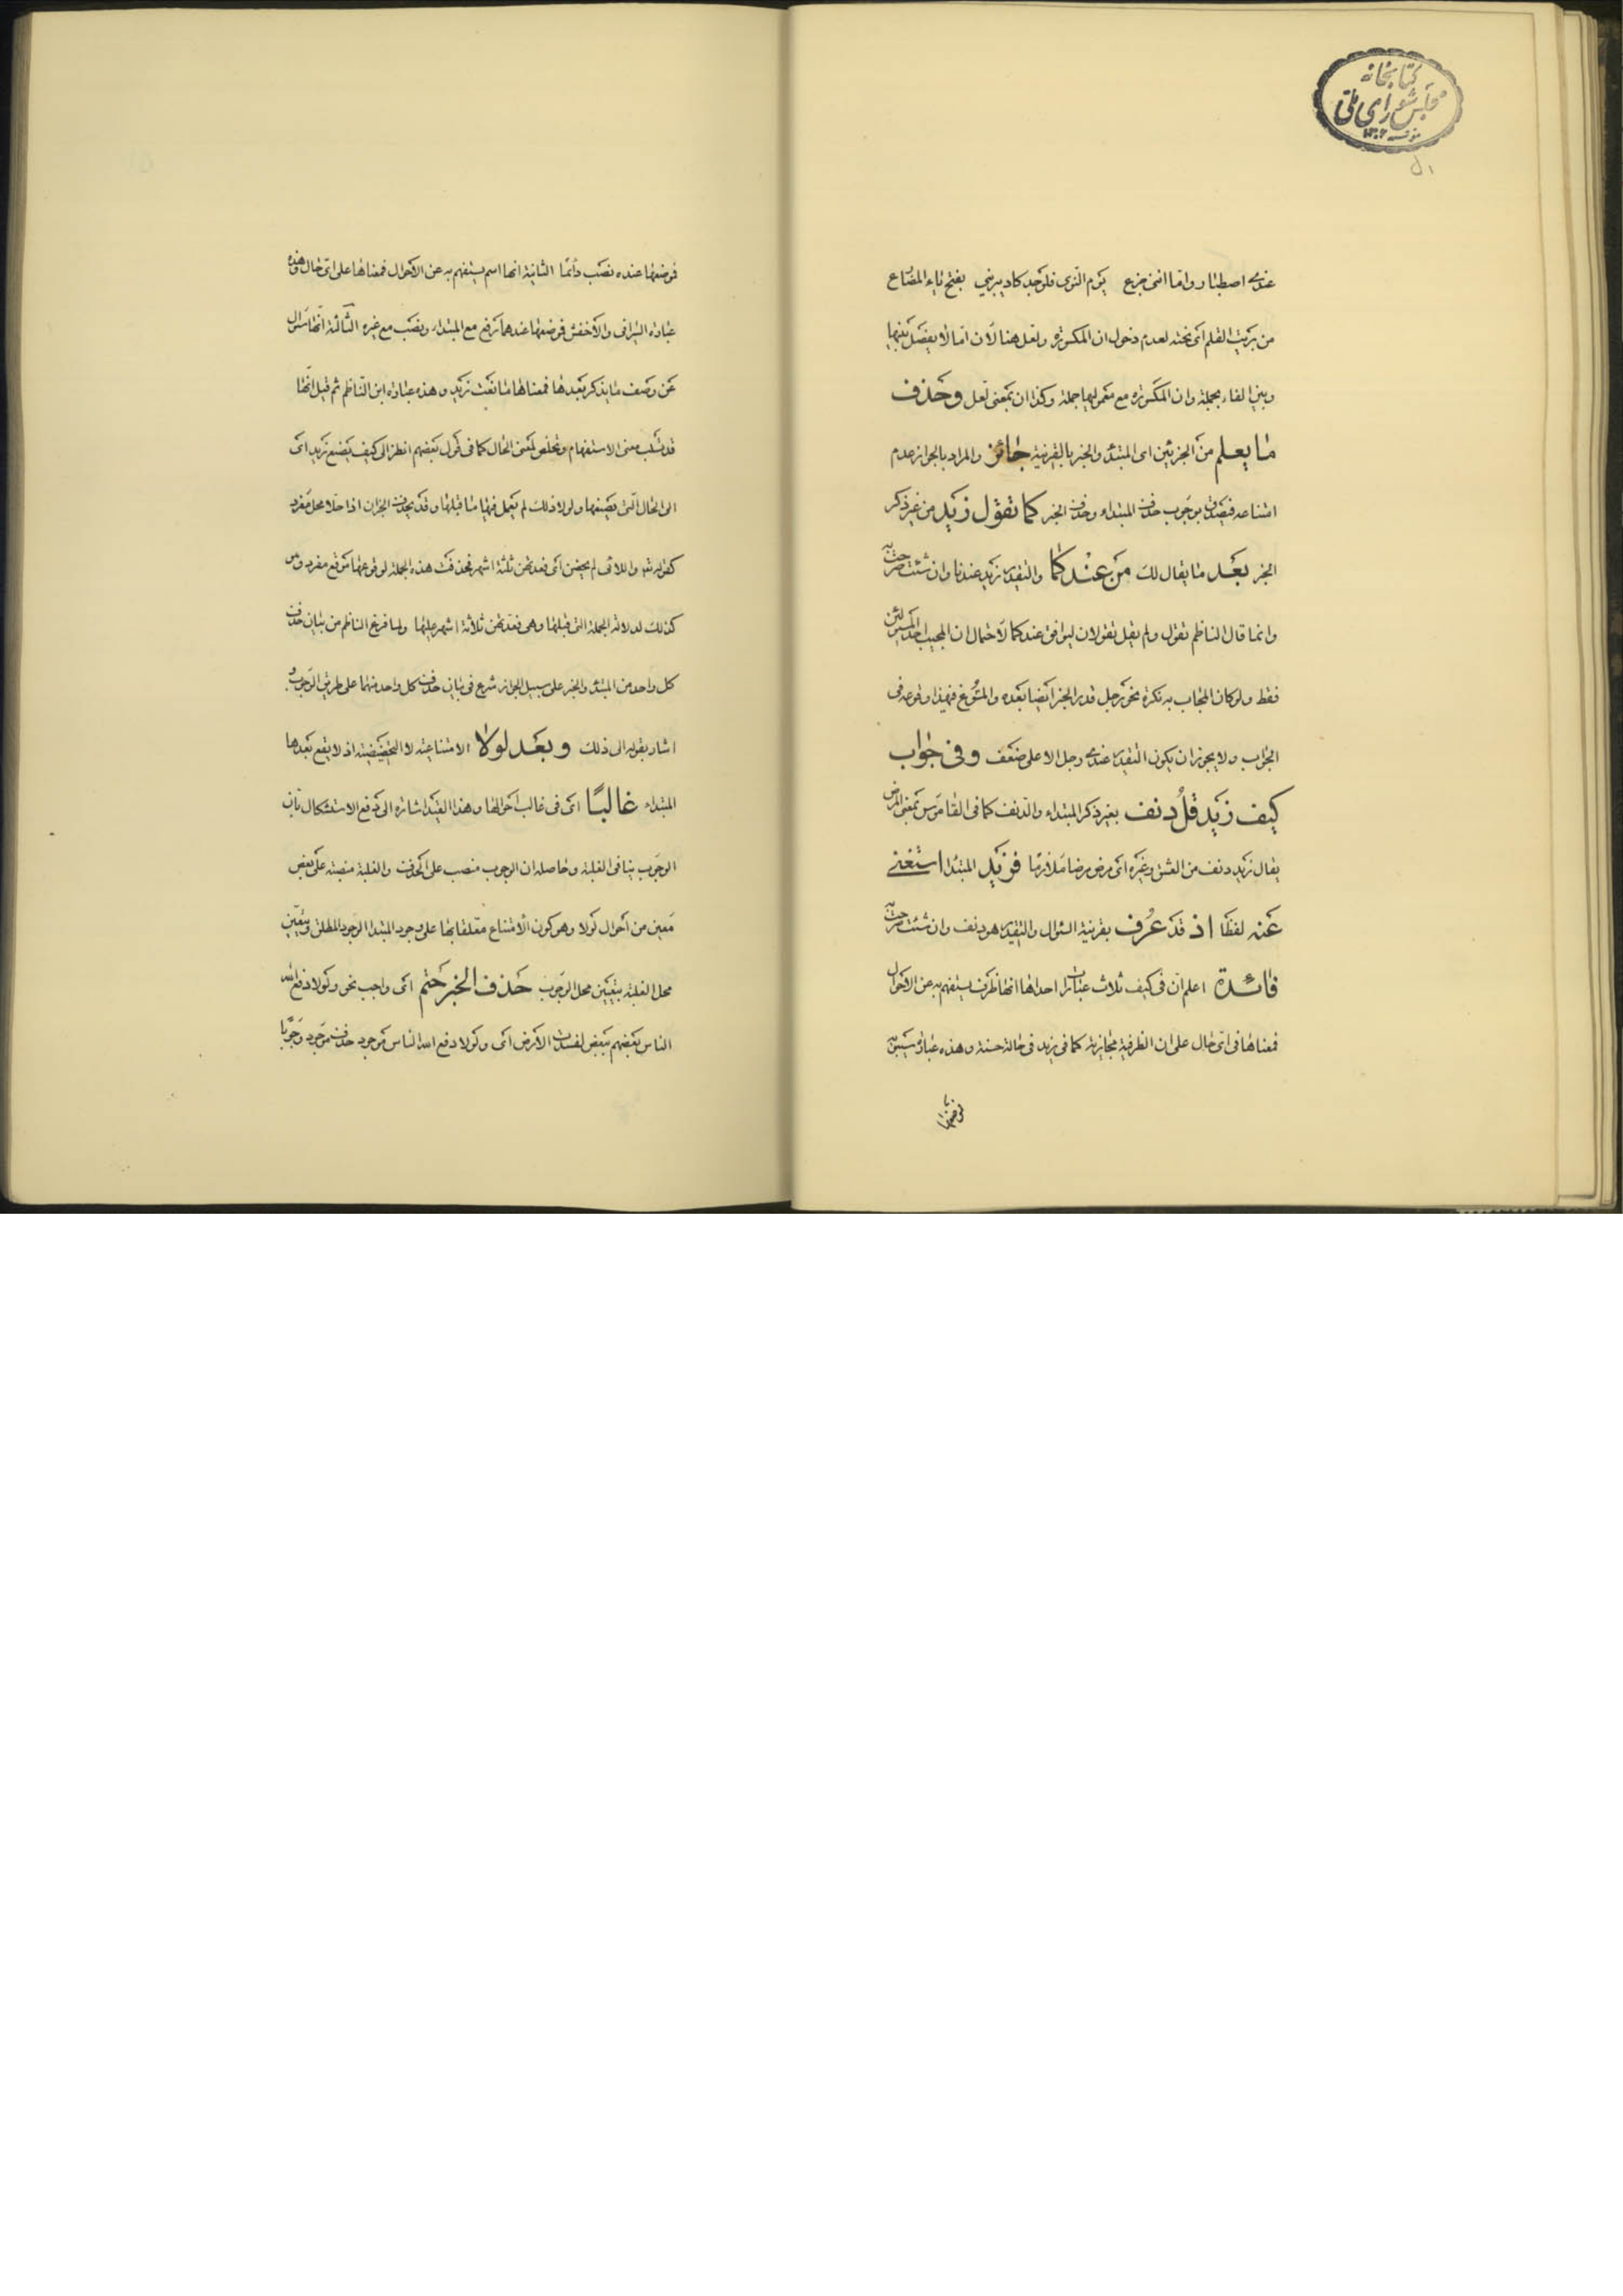 كتابخانه
مجلس شورای ملی
٥١
عندى اصطبار واما اننى جزع يوم النوى فلوجد كاد يبرينى بفتح ياء المضارع
من بريت القلم اى نحته لعدم دخول ان المكسورة ولعل هنا لان اما لا يفصل بينها
وبين الفاء بجملة وان المكسورة مع معموليها جملة وكذا ان بمعنى لعل وحذف
ما يعلم من الجزئين اى المبتدأ والخبر بالقرينة جائز والمراد بالجواز عدم
امتناعه فيصدق بوجوب حذف المبتداء وحذف الخبر كما تقول زيد من غير ذكر
الخبر بعد ما يقال لك من عندكما والتقدير زيد عندنا وان شئت صرحت به
وانما قال الناظم تقول ولم يقل تقولان ليوافق عندكما لاحتمال ان المجيب احد المسئولين
فقط ولو كان المجاب به نكرة نحو رجل قدر الخبر ايضا بعده والمسوغ فيهذا وقوعه فى
الجواب ولا يجوز ان يكون التقدير عندى رجل الا على ضعف وفى جواب
كيف زيد قل دنف بغير ذكر المبتداء والدنف كما فى القاموس بمعنى المرض
يقال زيد دنف من العشق وغيره اى مرض مرضا ملازما فزيد المبتدا استغنى
عنه لفظا اذ قد عرف بقرينة السئوال والتقدير هو دنف وان شئت صرحت به
فائدة اعلم ان فى كيف ثلاث عبارات احداها انها ظرف يستفهم به عن الاحوال
فمعناها فى اى حال على ان الظرفية مجازية كما فى زيد فى حالة حسنة وهذه عبارة سيبويه
فوضعها
فوضعها عنده نصب دائما الثانية انها اسم يستفهم به عن الاحوال فمعناها على اى حال وهذه
عبارة السيرافى والاخفش فوضعها عندهما رفع مع المبتداء ونصب مع غيره الثالثة انها سؤال
عن وصف ما يذكر بعدها فمعناها ما نعت زيد وهذه عبارة ابن الناظم ثم قيل انها
قد تسلب معنى الاستفهام وتخلص لمعنى الحال كما فى قول بعضهم انظر الى كيف يصنع زيد اى
الى الحال التى يصنعها ولولا ذلك لم يعمل فيها ما قبلها وقد يحذف الجزءان اذا حلا محل مفرد
كقوله تعه واللائى لم يحضن اى فعدتهن ثلثة اشهر فحذفت هذه الجملة لوقوعها موقع مفرد وهو
كذلك لدلالة الجملة التى قبلها وهى فعدتهن ثلاثة اشهر عليها ولما فرغ الناظم من بيان حذف
كل واحد من المبتدأ والخبر على سبيل الجواز شرع فى بيان حذف كل واحد منهما على طريق الوجوب و
اشار بقوله الى ذلك وبعد لولا الامتناعية لا التحضيضية اذ لا يقع بعدها
المبتداء غالبًا اى فى غالب احوالها وهذا القيد اشارة الى دفع الاستشكال بان
الوجوب ينافى الغلبة وحاصله ان الوجوب منصب على الحذف والغلبة منصبة على بعض
معين من احوال لولا وهو كون الامتناع معلقا بها على وجود المبتدا الوجود المطلق ويتعين
محل الغلبة بتعيين محل الوجوب حذف الخبر حتم اى واجب نحو ولولا دفع الله
الناس بعضهم ببعض لفسدت الارض اى ولولا دفع الله الناس موجود حذف موجود وجوبا